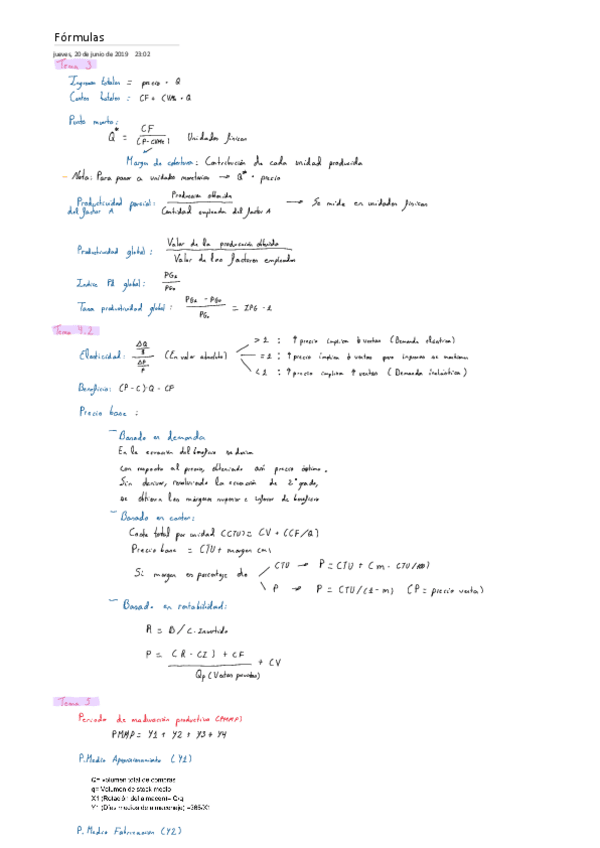 Fórmulas
jueves, 20 de junio de 2019 23:02
Tema 3
Ingresos totales = precio · Q
Costes totales = CF + CVMe · Q
Punto muerto:
Q* = CF / (P-CVMe) Unidades físicas
Margen de cobertura: Contribución de cada unidad producida
- Nota: Para pasar a unidades monetarias → Q* · precio
Productividad parcial: Producción obtenida / Cantidad empleada del factor A → Se mide en unidades físicas
del factor A
Productividad global: Valor de la producción obtenida / Valor de los factores empleados
Indice PB global: PG₁ / PG₀
Tasa productividad global: PG₁ - PG₀ / PG₀ = IPG - 1
Tema 4.2
Elasticidad: ΔQ/Q / ΔP/P (En valor absoluto)
> 1 : ↑ precio implica ↓ ventas (Demanda elástica)
= 1 : ↑ precio implica ↓ ventas pero ingresos se mantienen
< 1 : ↑ precio implica ↑ ventas (Demanda inelástica)
Beneficio: (P-C)·Q - CF
Precio base :
- Basado en demanda
En la ecuación del beneficio se deriva
con respecto al precio, obteniendo así precio óptimo.
Sin derivar, resolviendo la ecuación de 2º grado,
se obtienen los márgenes superior e inferior de beneficio
- Basado en costes:
Coste total por unidad (CTU) = CV + (CF/Q)
Precio base = CTU + margen (m)
Si margen es porcentaje de
CTU → P = CTU + (m · CTU/100)
P → P = CTU/(1-m) (P = precio venta)
- Basado en rentabilidad:
R = B / C. Invertido
P = (R · CI) + CF / Qp (Ventas previstas) + CV
Tema 5
Periodo de maduración productivo (PMMP)
PMMP = Y1 + Y2 + Y3 + Y4
P. Medio Aprovisionamiento (Y1)
Q= volumen total de compras
q= Volumen de stock medio
X1 (Rotación del almacen)= Q/q
Y1 (Días medios de almacenaje) =365/X1
P. Medio Fabricación (Y2)